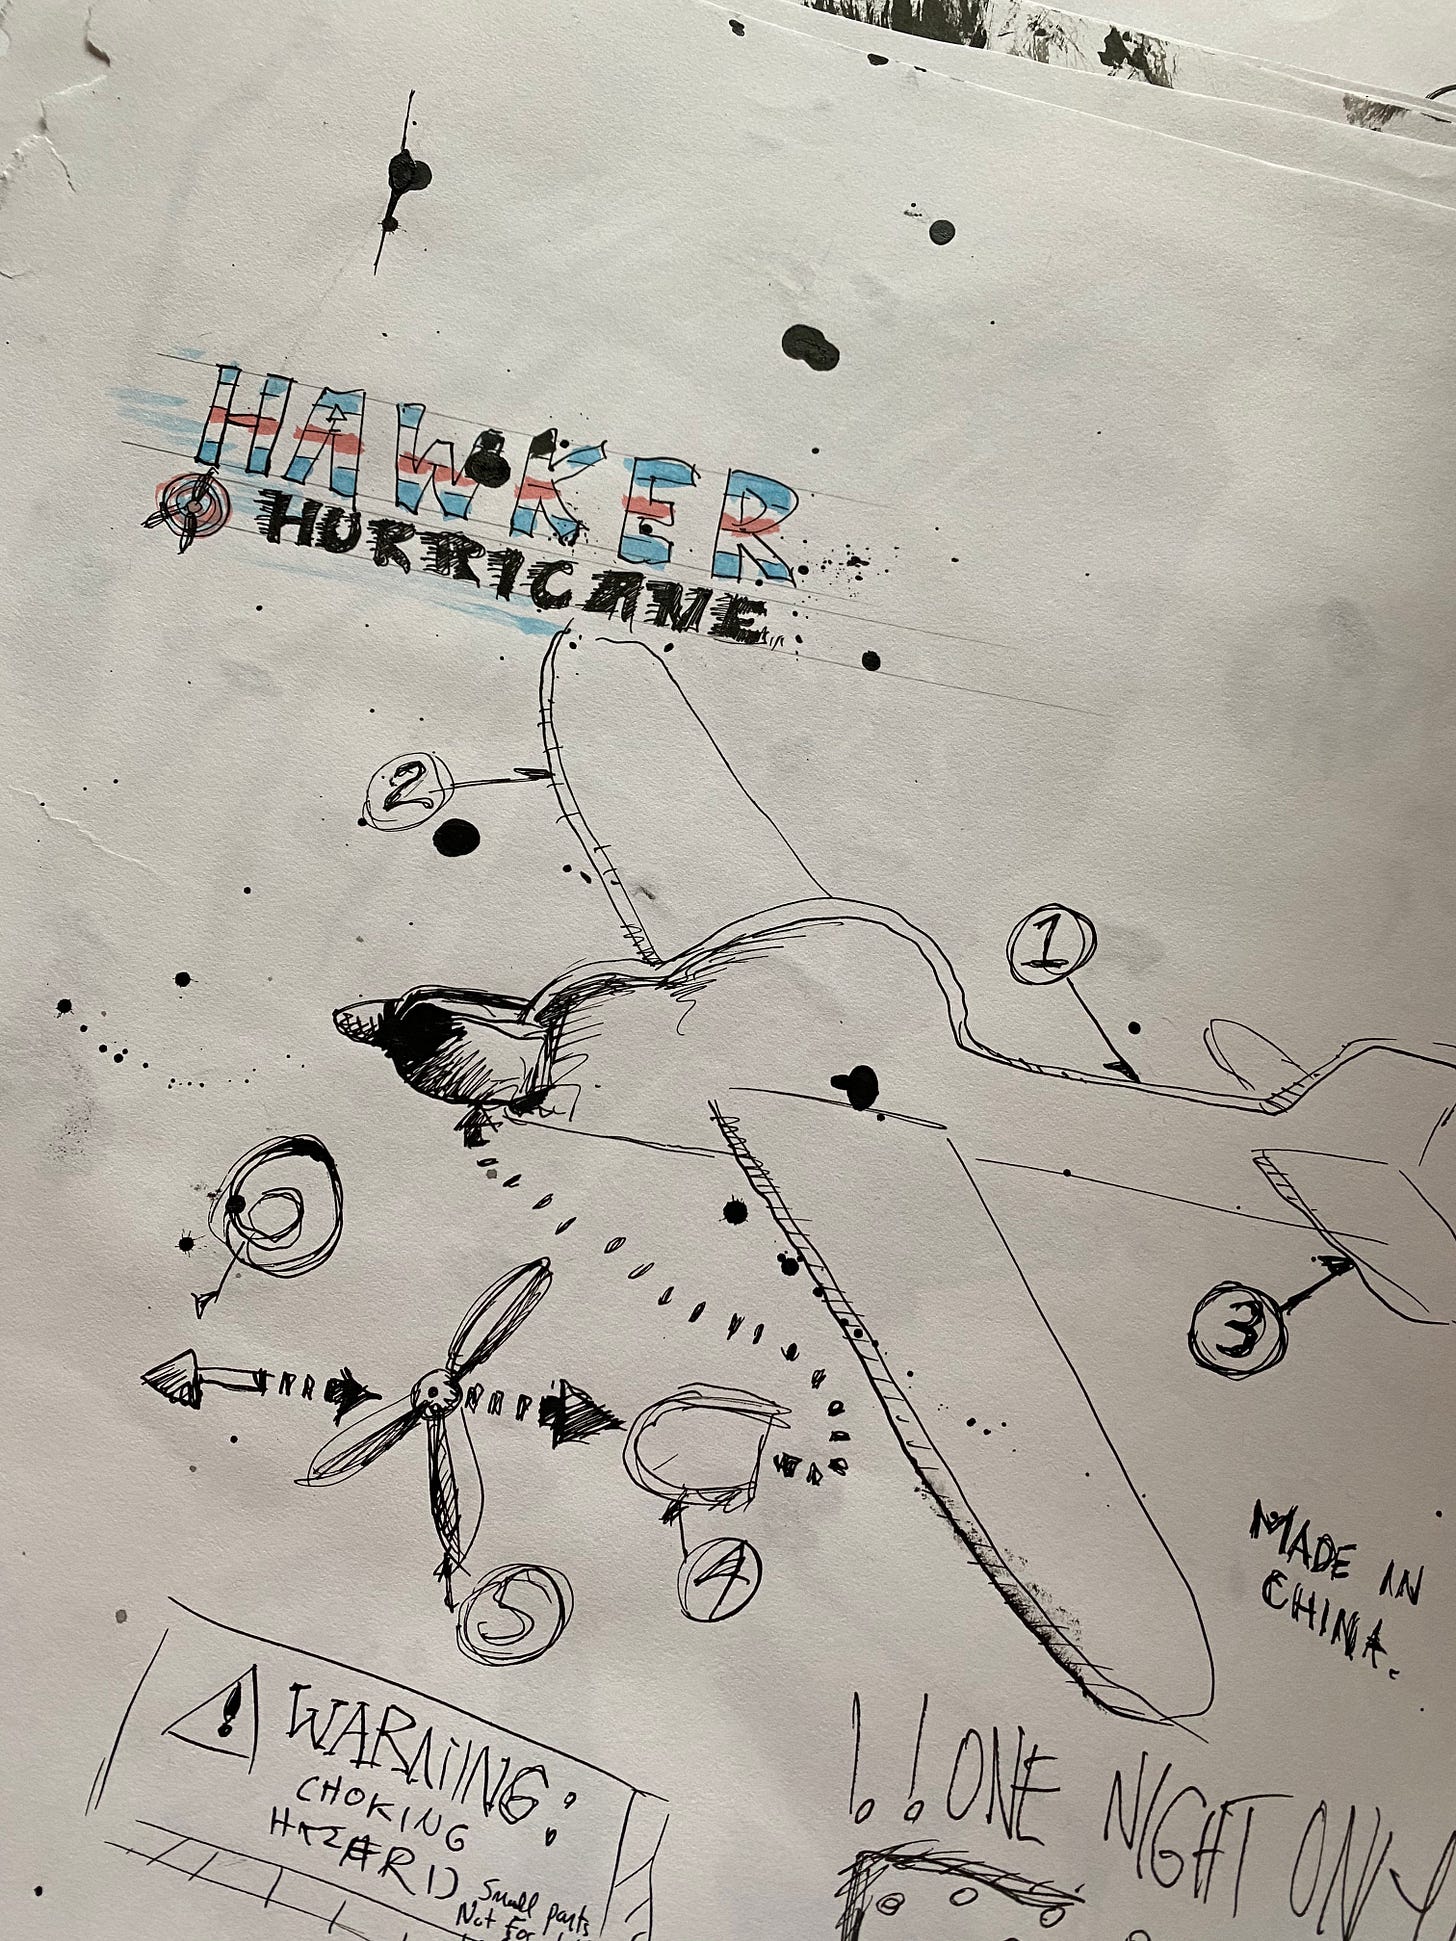 HAWKER
HURRICANE
2
1
3
4
5
MADE IN
CHINA.
WARNING:
CHOKING
HAZARD
Small parts
Not For
!! ONE NIGHT ONLY